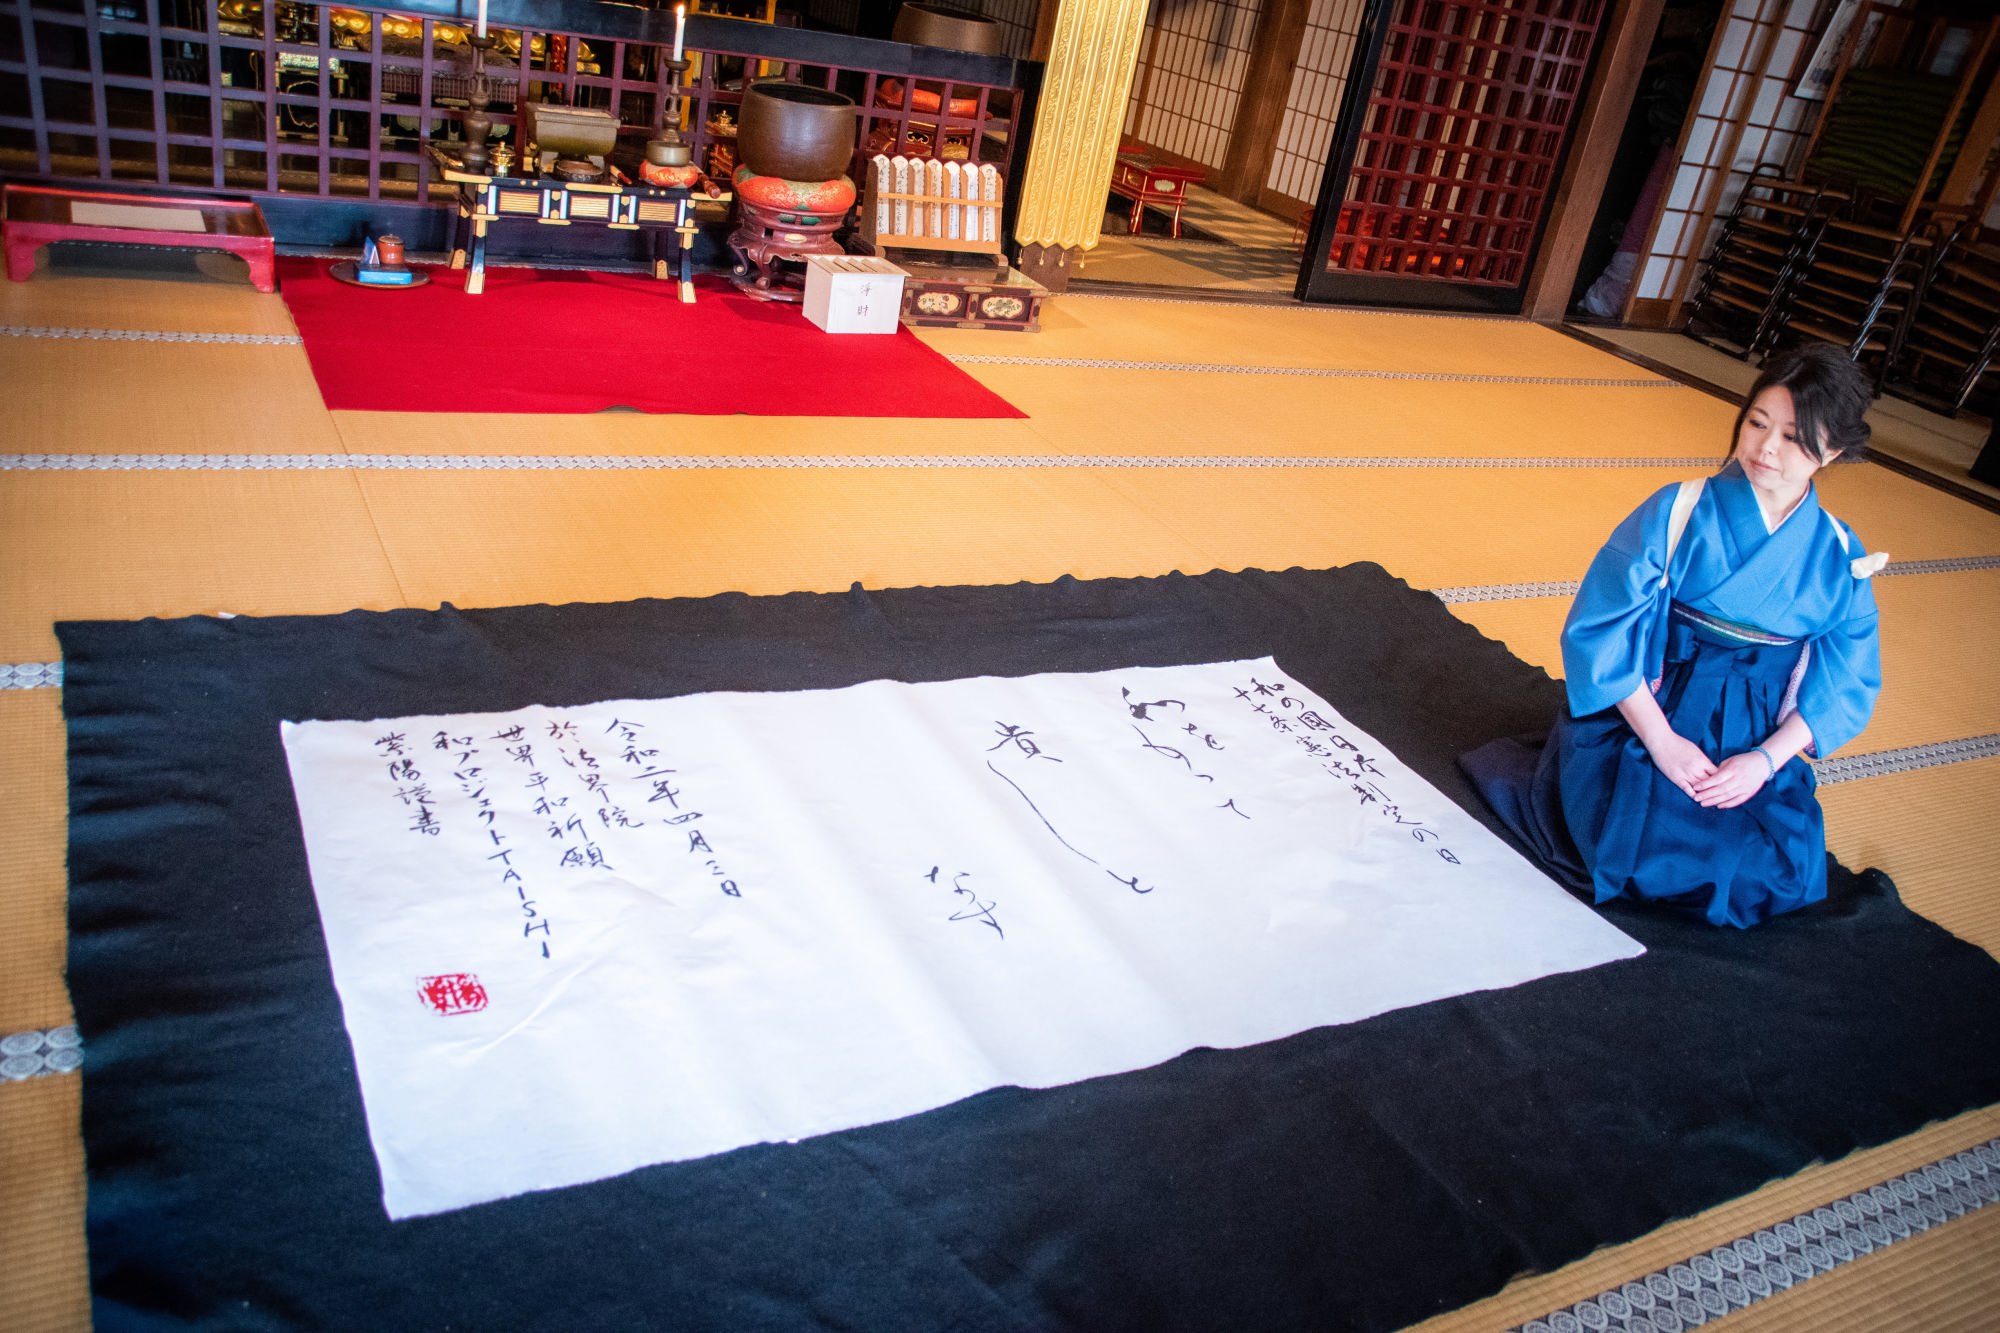 和の国日本
十七条憲法制定の日
和を
もって
貴しと
なす
令和二年四月三日
於法界院
世界平和祈願
和プロジェクトTAISHI
紫陽謹書
浄財